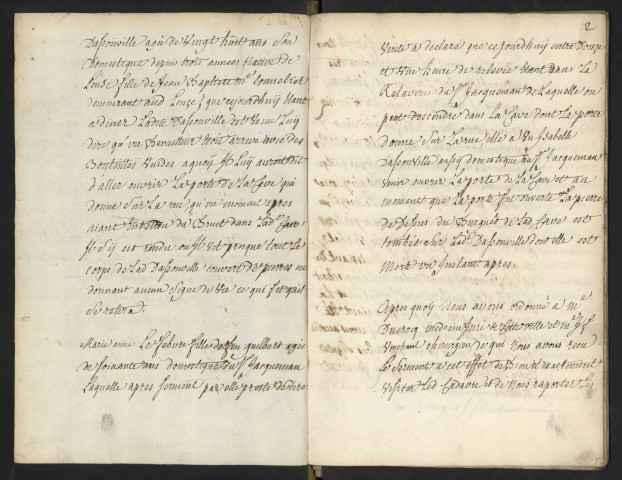 Dassonville agée de vingt huit ans son
domestique depuis trois années native de
Leuze fille de Jean Baptiste m.e
demeurant aud Leuze que cejourdhuy étant
a diner Ladite Dassonville est venue Luy
dire qu'un Brouetteur étoit arrivé avec des
Bouteilles vuides aquoy Il Luy auroit dit
d'aller ouvrir La porte de La Cave qui
donne sur La rue qu'un moment apres
aiant du Bruit dans Lad. Cave
Il s'y est rendu ou Il vit presque tout Le
corps de Lad Dassonville couvert de pierres ne
donnant aucun signe de vie ce qui fit qu'il
se retira
Marie anne Le febvre fille de feu guilbert agée
de soixante ans domestique du S.r Jacquereau
Laquelle apres serment par elle presté de dire
2
Verité a declaré que cejourdhuy entre Douze
et Une heure de relevée étant dans La
Relaverie du S.r Jacquereau de Laquelle on
peut descendre dans La Cave dont La porte
donne sur La rue elle a vu Isabelle
Dassonville aussy domestique du S.r Jacquereau
venir ouvrir La porte de La Cave et au
moment que La porte fut ouverte La pierre
de Dessus du Burguet de Lad. Cave est
tombée sur Lad. Dassonville dont elle est
Morte un Instant apres.
Apres quoy Nous avons ordonné a M.e
Ducrocq medecin Juré de cette ville et m.e
chirurgien de qui Nous avons recu
Le serment a cet effet de Bien et exactement
visiter Led Cadavre et de Nous raporter